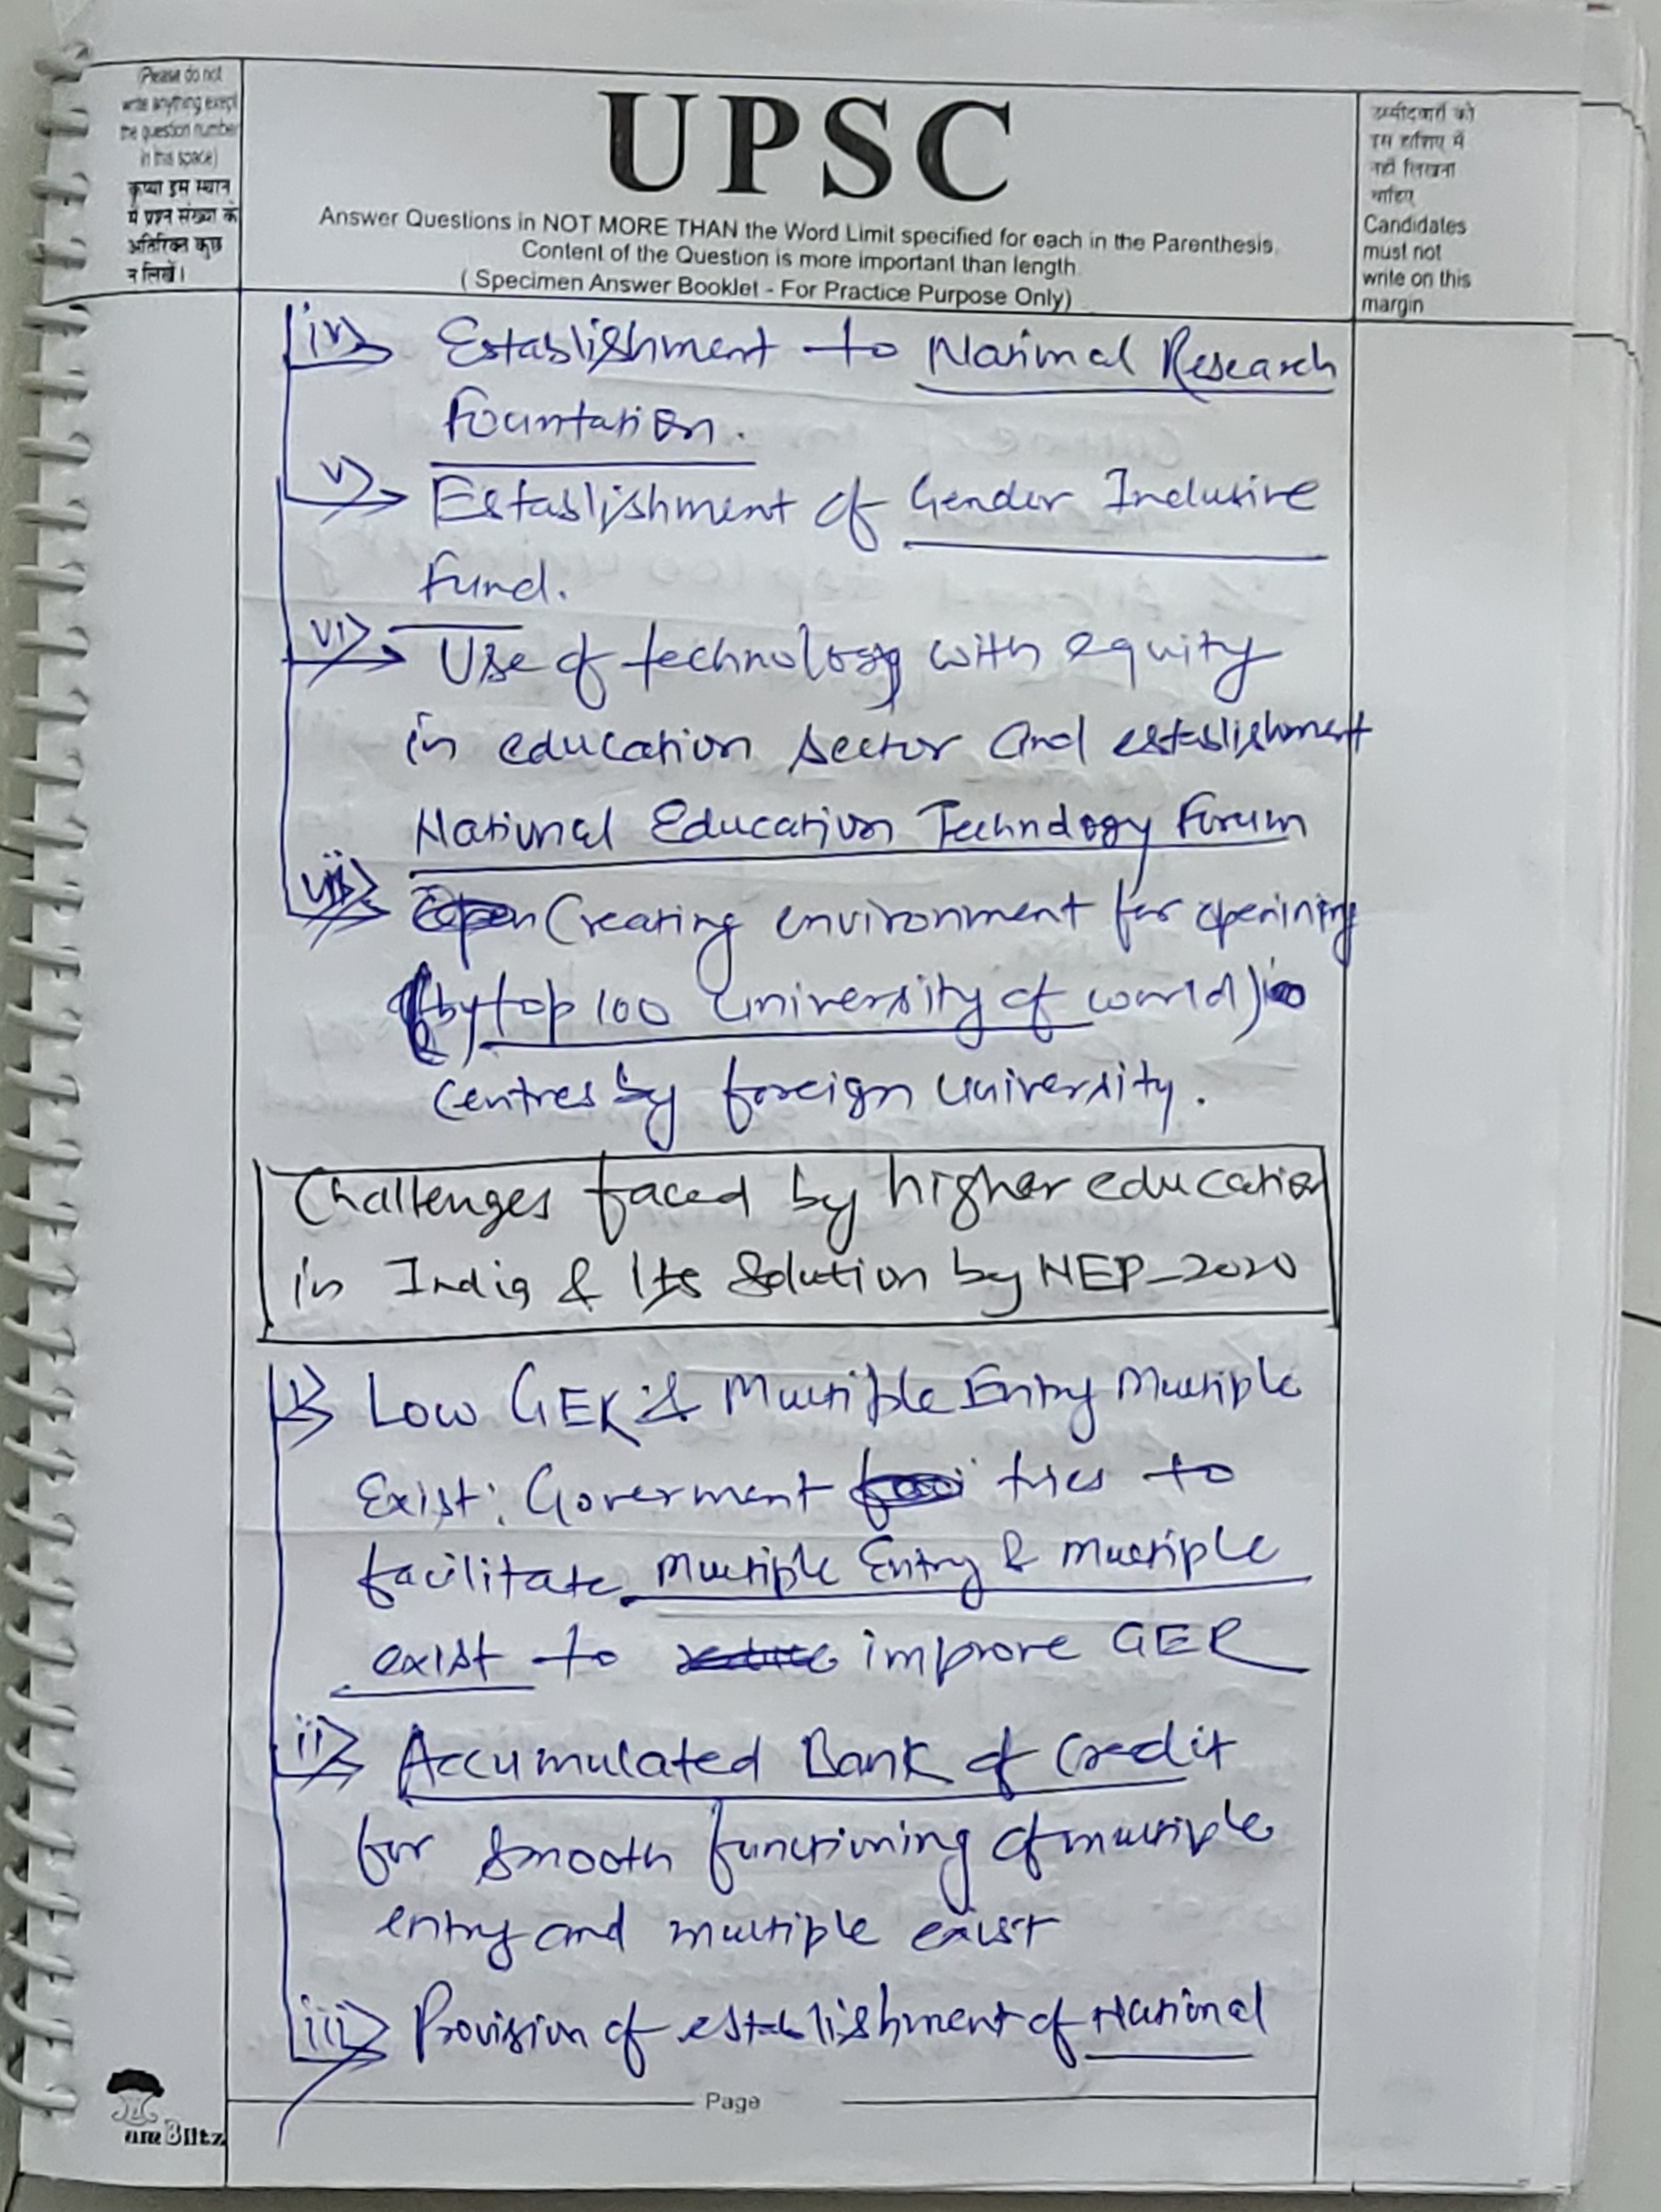 (Please do not
write anything except
the question number
in this space)
कृपया इस स्थान
में प्रश्न संख्या के
अतिरिक्त कुछ
न लिखें।
UPSC
Answer Questions in NOT MORE THAN the Word Limit specified for each in the Parenthesis.
Content of the Question is more important than length.
( Specimen Answer Booklet - For Practice Purpose Only)
उम्मीदवारों को
इस हाशिए में
नहीं लिखना
चाहिए
Candidates
must not
write on this
margin
iv) Establishment to National Research
Fountation.
v) Establishment of Gender Inclusive
Fund.
vi) Use of technology with equity
in education sector and establishment
National Education Technology Forum
vii) Creating environment for opening
(by top 100 University of world)
centres by foreign University.
Challenges faced by higher education
in India & Its Solution by NEP-2020
i) Low GER & Multiple Entry Multiple
Exist: Goverment tries to
facilitate Multiple Entry & Multiple
exist to improve GER
ii) Accumulated Bank of Credit
for smooth functioning of multiple
entry and multiple exist
iii) Provision of establishment of National
Page